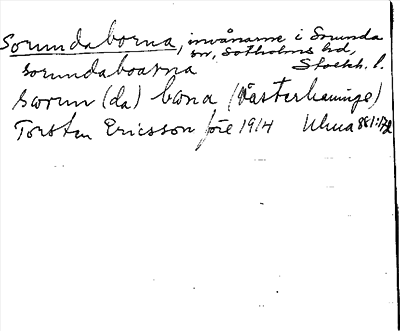 Sorundaborna, invånarne i Sorunda
sn, Sotholms hd,
sorundaboarna Stockh. l.
sorun (da) bona (Västerhaninge)
Torsten Ericsson före 1914 Ulua 881: